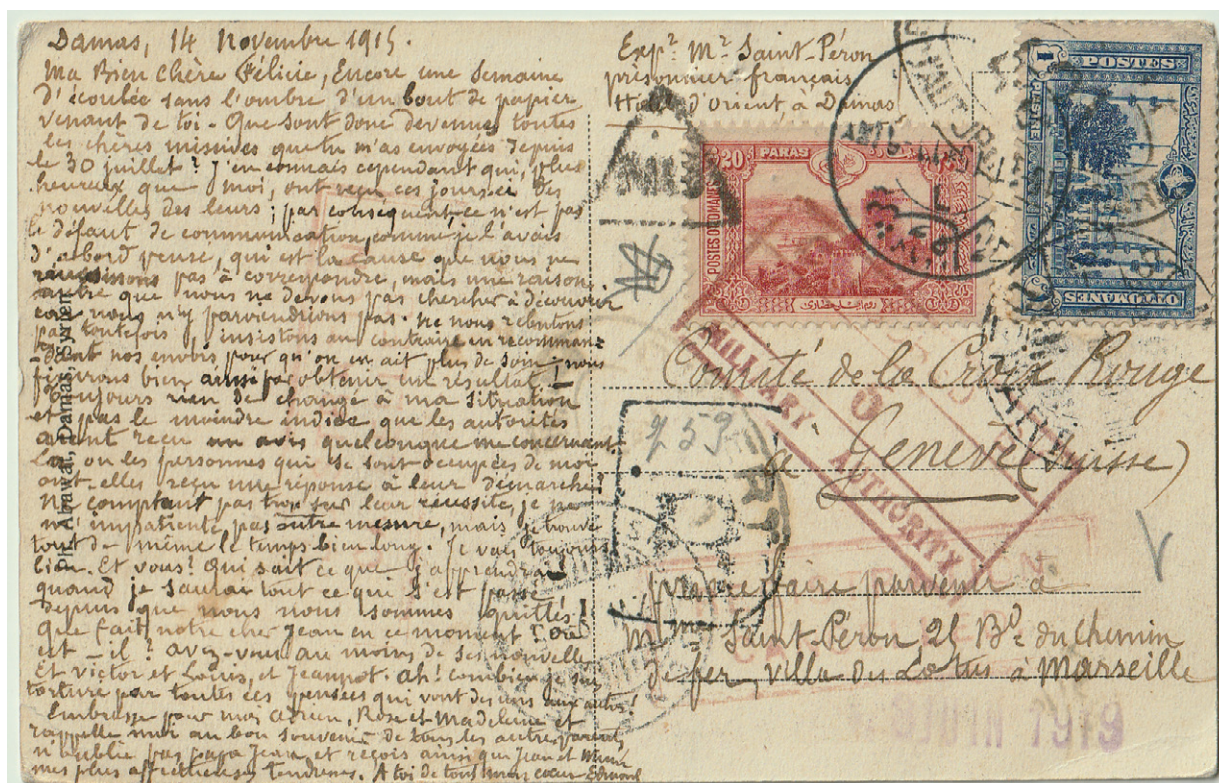 Damas, 14 Novembre 1915.
Ma Bien Chère Félicie, Encore une semaine
d'écoulée sans l'ombre d'un bout de papier
venant de toi - Que sont donc devenues toutes
les chères missives que tu m'as envoyées depuis
le 30 juillet ? J'en connais cependant qui, plus
heureux que moi, ont reçu ces jours-ci des
nouvelles des leurs ; par conséquent ce n'est pas
le défaut de communication, comme je l'avais
d'abord pensé, qui est la cause que nous ne
réussissons pas à correspondre, mais une raison
autre que nous ne devons pas chercher à découvrir
car nous n'y parviendrions pas. Ne nous rebutons
pas toutefois, insistons au contraire en recomman-
-dant nos envois pour qu'on en ait plus de soin - nous
finirons bien ainsi par obtenir un résultat !-
Toujours rien de changé à ma situation
et pas le moindre indice que les autorités
aient reçu un avis quelconque me concernant.
La ou les personnes qui se sont occupées de moi
ont-elles reçu une réponse à leur démarche?
Ne comptant pas trop sur leur réussite, je ne
m'impatiente pas outre mesure, mais je trouve
tout de même le temps bien long. Je vais toujours
bien. Et vous! Qui sait ce que j'apprendrai
quand je saurai tout ce qui s'est passé
depuis que nous nous sommes quittés!
Que fait notre cher Jean en ce moment ? Où
est-il ? avez-vous au moins de ses nouvelles
Et Victor et Louis, et Jeannot. Ah! combien je suis
torturé par toutes ces pensées qui vont des uns aux autres!
Embrasse pour moi Adrien, Rose et Madeleine et
rappelle-moi au bon souvenir de tous les autres parents,
n'oublie pas papa Jean, et reçois ainsi que Jean et Mimi
mes plus affectueuses tendresses. A toi de tout mon cœur Edmond
Abrawat, Damas, Syrien
Expr Mr Saint-Péron
prisonnier français
Hotel d'Orient à Damas
20 PARAS
POSTES OTTOMANES
1 POSTES
PIASTRE
OTTOMANES
MILITARY AUTHORITY
259
Comité de la Croix Rouge
à Genève (Suisse)
pour faire parvenir à
Mme Saint-Péron, 25 Bd du Chemin
de fer, villa des Lotus à Marseille
JUIN 1919